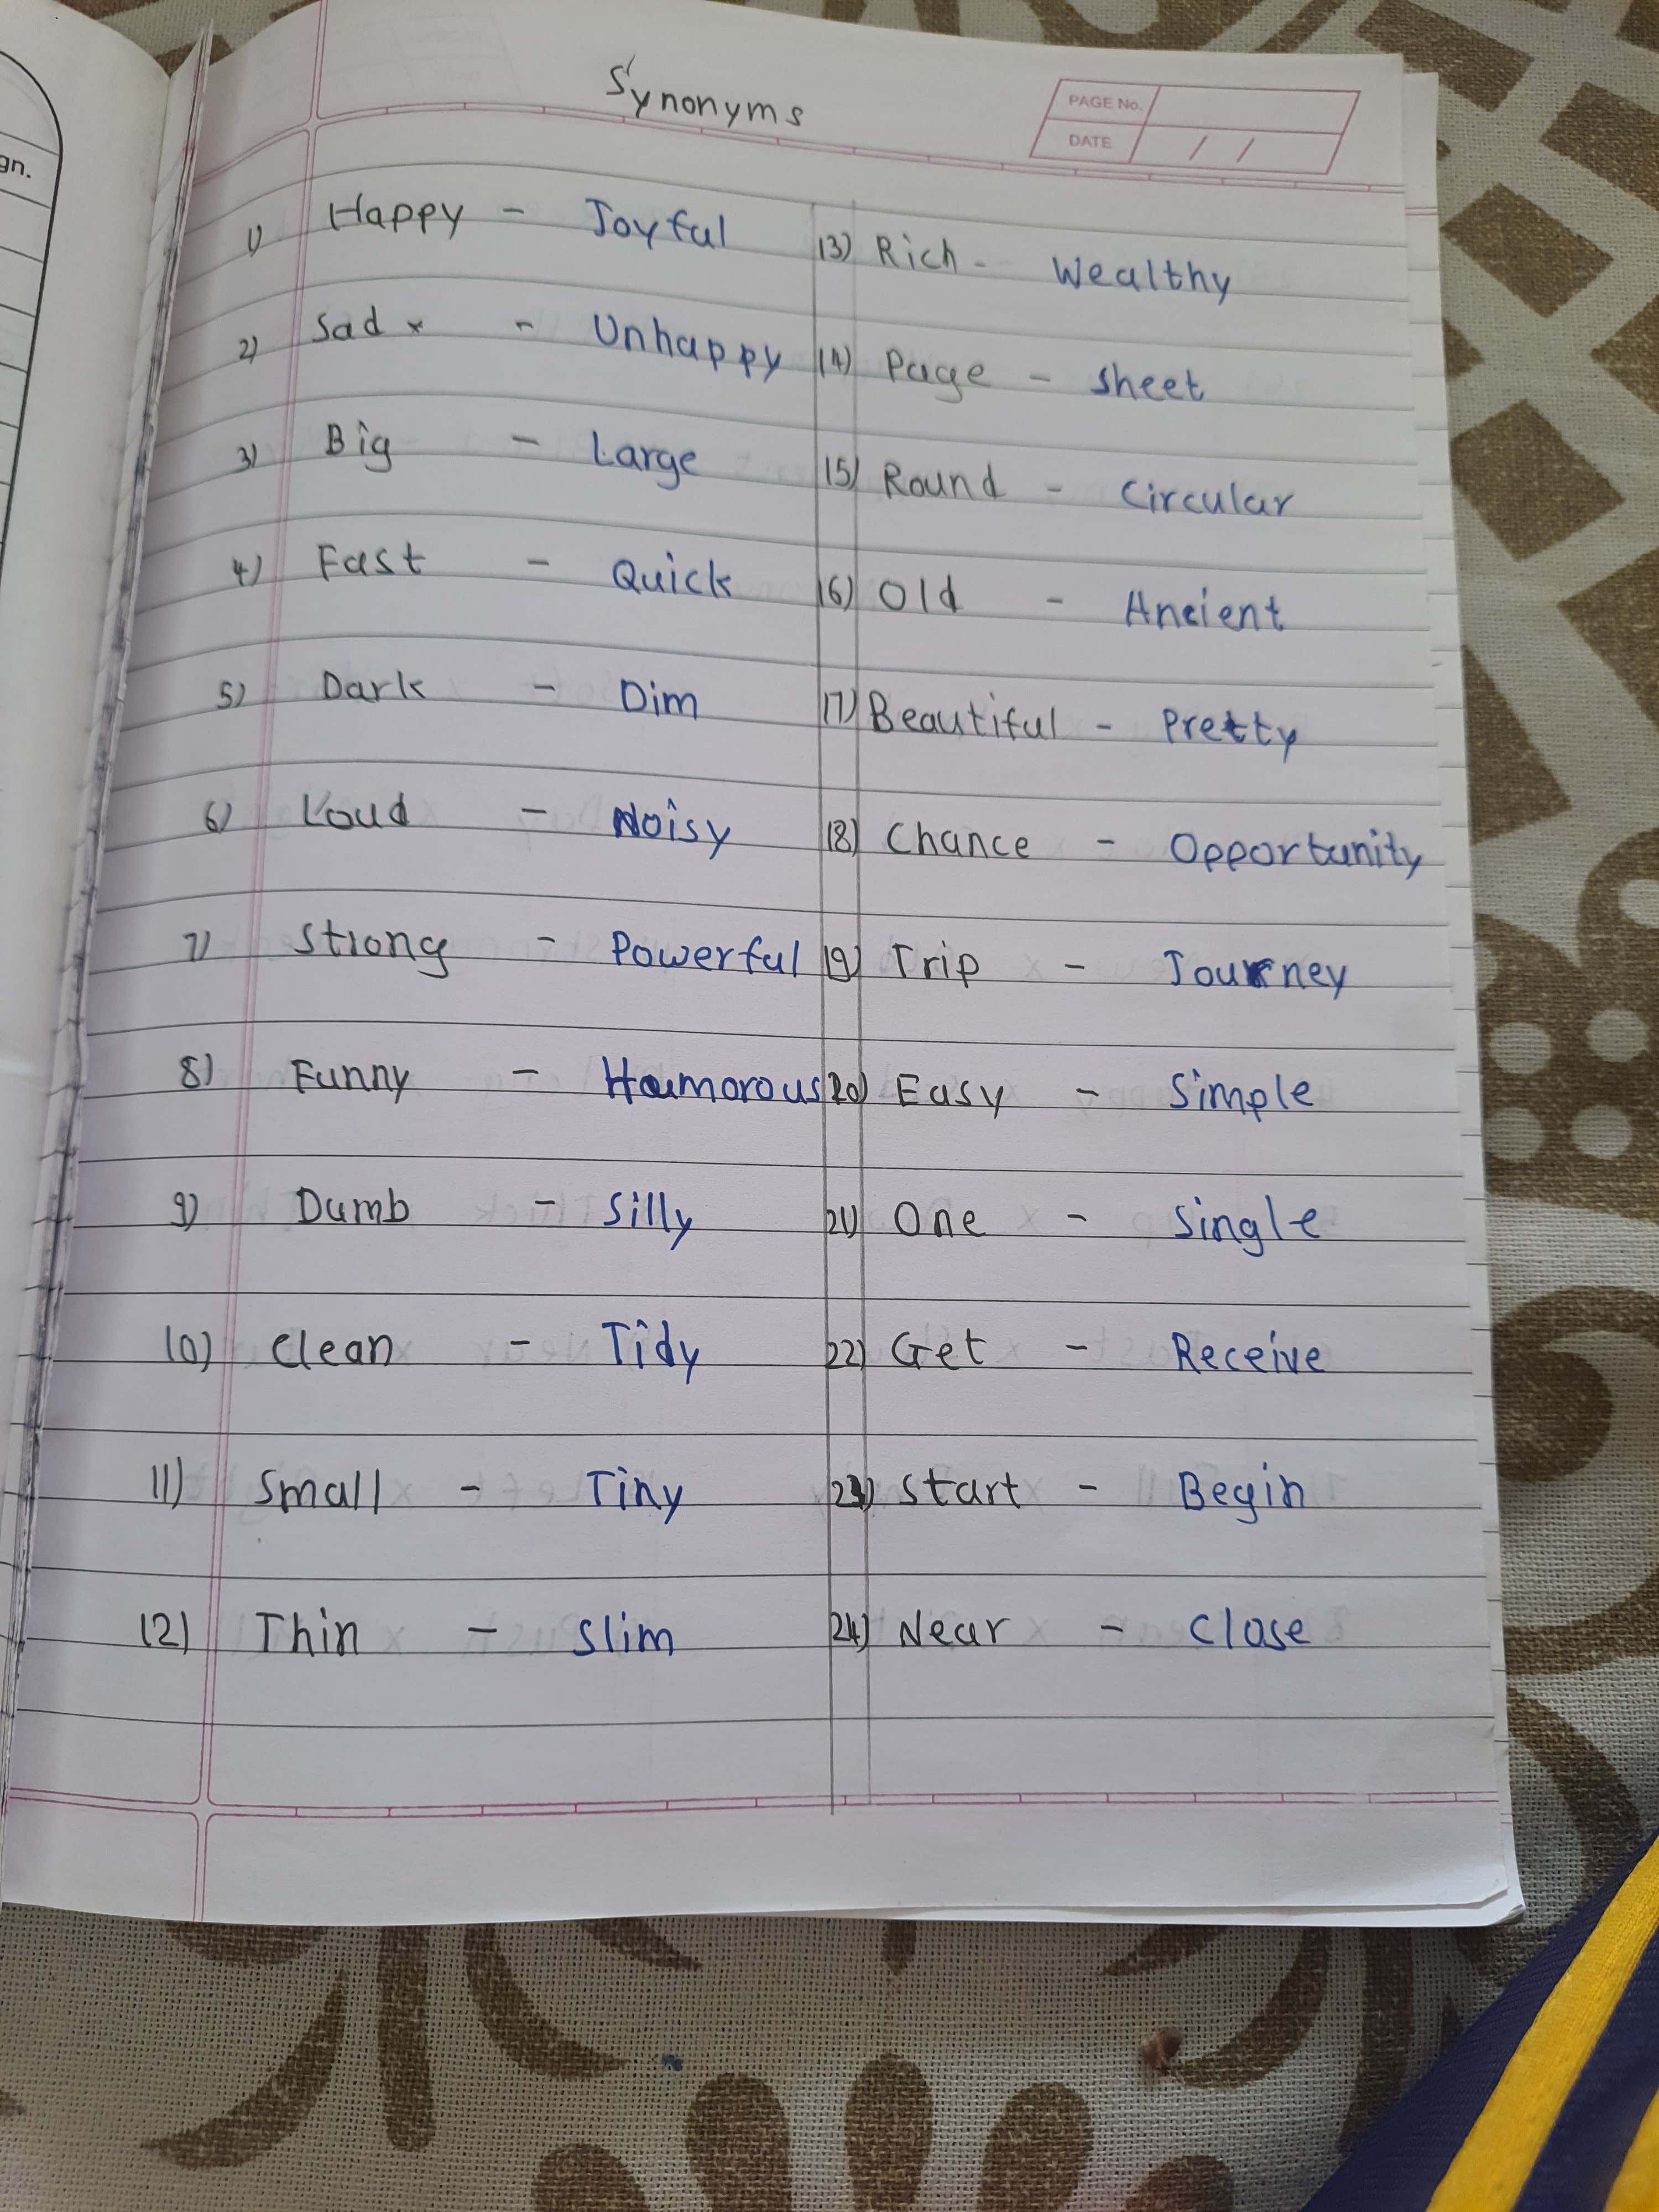 gn.
Synonyms
PAGE No.
DATE / /
1) Happy - Joyful
2) Sad x - Unhappy
3) Big - Large
4) Fast - Quick
5) Dark - Dim
6) Loud - Noisy
7) Strong - Powerful
8) Funny - Humorous
9) Dumb - Silly
10) Clean - Tidy
11) Small - Tiny
12) Thin - Slim
13) Rich - Wealthy
14) Page - Sheet
15) Round - Circular
16) Old - Ancient
17) Beautiful - Pretty
18) Chance - Opportunity
19) Trip - Journey
20) Easy - Simple
21) One - Single
22) Get - Receive
23) Start - Begin
24) Near - Close